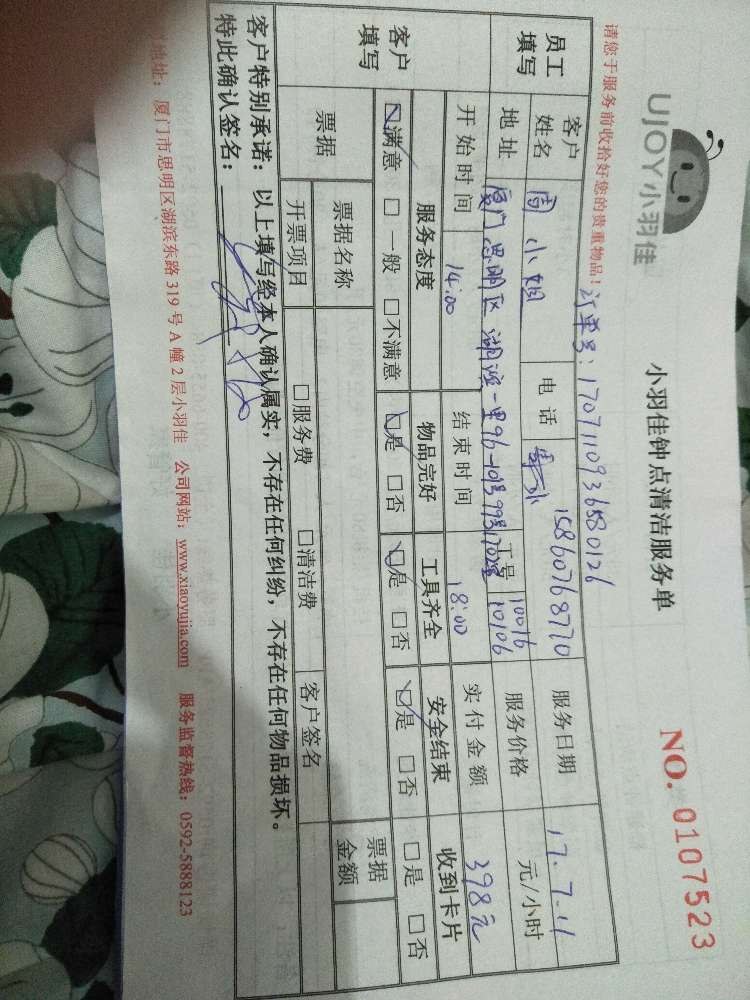 UJOY小羽佳
小羽佳钟点清洁服务单
NO. 0107523
请您于服务前收拾好您的贵重物品！
订单号：1707110936580126
员工填写
客户姓名 周小姐 电话 15860768770 服务日期 17.7.11
地址 厦门思明区湖滨一里96-10号 工号 10016 10106 服务价格 元/小时
开始时间 14:00 结束时间 18:00 实付金额 398元
客户填写
服务态度 物品完好 工具齐全 安全结束 收到卡片
☑满意 □一般 □不满意 ☑是 □否 ☑是 □否 ☑是 □否 □是 □否
票据 票据名称 票据金额
开票项目 □服务费 □清洁费 客户签名
客户特别承诺：以上填写经本人确认属实，不存在任何纠纷，不存在任何物品损坏。
特此确认签名：
地址：厦门市思明区湖滨东路319号A幢2层小羽佳 公司网站：www.xiaoyujia.com 服务监督热线：0592-5888123